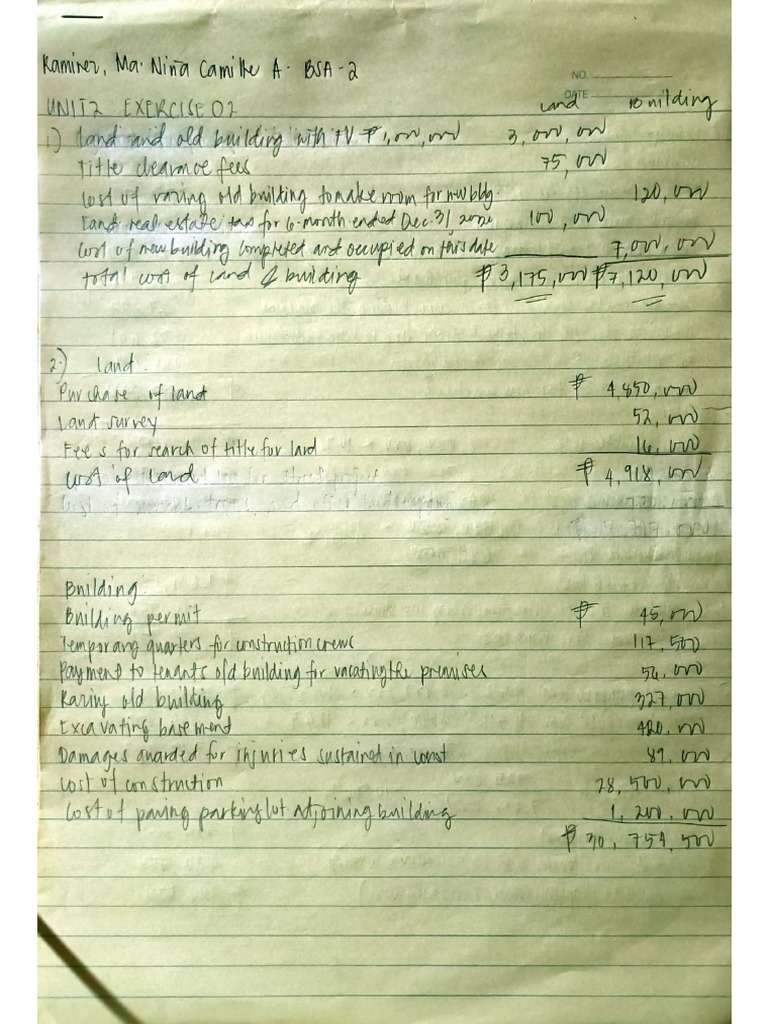 Ramirez, Ma. Niña Camille A. BSA-2
NO.
DATE
UNIT 2 EXERCISE 02 Land Building
1) Land and old building with FV ₱1,000,000 3,000,000
Title clearance fees 75,000
Cost of razing old building to make room for new bldg. 120,000
Land real estate tax for 6-month ended Dec. 31, 100,000
Cost of new building completed and occupied on this date 7,000,000
Total cost of land & building ₱3,175,000 ₱7,120,000
2.) Land.
Purchase of land ₱ 4,850,000
Land survey 52,000
Fees for search of title for land 16,000
Cost of land ₱ 4,918,000
Building:
Building permit ₱ 45,000
Temporary quarters for construction crews 117,500
Payment to tenants old building for vacating the premises 56,000
Razing old building 327,000
Excavating basement 420,000
Damages awarded for injuries sustained in const 89,000
Cost of construction 28,500,000
Cost of paving parking lot adjoining building 1,200,000
₱ 30,754,500